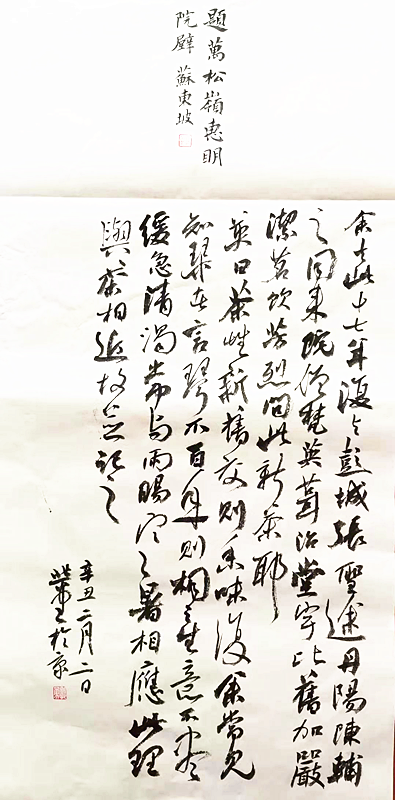 題萬松嶺惠明
院壁 蘇東坡
余去此十七年復與彭城張聖途丹陽陳輔
之同来院僧梵英葺治堂宇比舊加嚴
潔茗飲芳烈問此新茶耶
英曰茶性新舊交則香味復余嘗見
知琴者言琴不百年則桐之生意不盡
緩急清濁常与雨暘寒暑相應此理
與茶相近故並記之
辛丑二月二日
於京